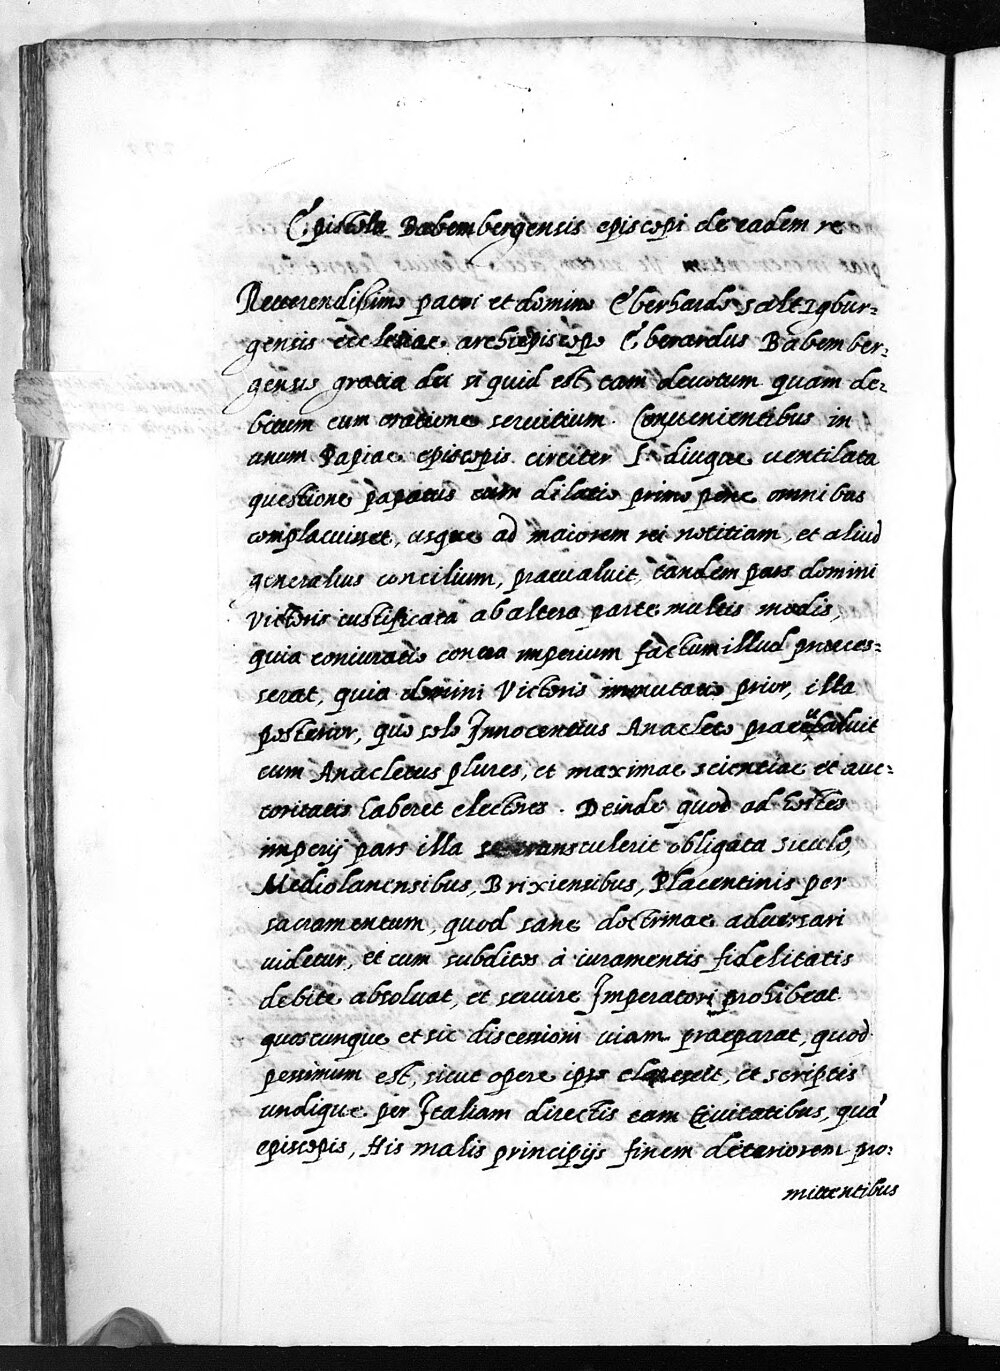 Epistola Babembergensis episcopi de eadem re
Reuerendissimo patri et domino Eberhardo saltzgbur=
gensis ecclesiae archiepiscopo Eberardus Babember=
gensis gratia dei si quid est tam deuotum quam de=
bitum cum oratione seruitium. Conuenientibus in
unum Papiae episcopis circiter L. diuque uentilata
questione papatus cum dilatio primo pene omnibus
complacuisset, usque ad maiorem rei notitiam, et aliud
generalius concilium, praeualuit tandem pars domini
Victoris iustificata ab altera parte multis modis,
quia coniuratio contra imperium factum illud praeces=
serat, quia domini Victoris immutatio prior, illa
posterior, quo solo Innocentius Anacleto praeualuit
cum Anacletus plures, et maximae scientiae et auc=
toritatis haberet electores. Deinde quod ad hostes
imperij pars illa se transtulerit obligata siculo,
Mediolanensibus, Brixiensibus, Placentinis per
sacramentum, quod sane doctrinae aduersari
uidetur, et cum subditos à iuramentis fidelitatis
debite absoluat, et seruire Imperatori prohibeat
quoscunque et sic discessioni uiam praeparat, quod
pessimum est, sicut opere ipso claruit, et scriptis
undique per Italiam directis tam Ciuitatibus, quá
episcopis, His malis principijs finem deteriorem pro=
mittentibus